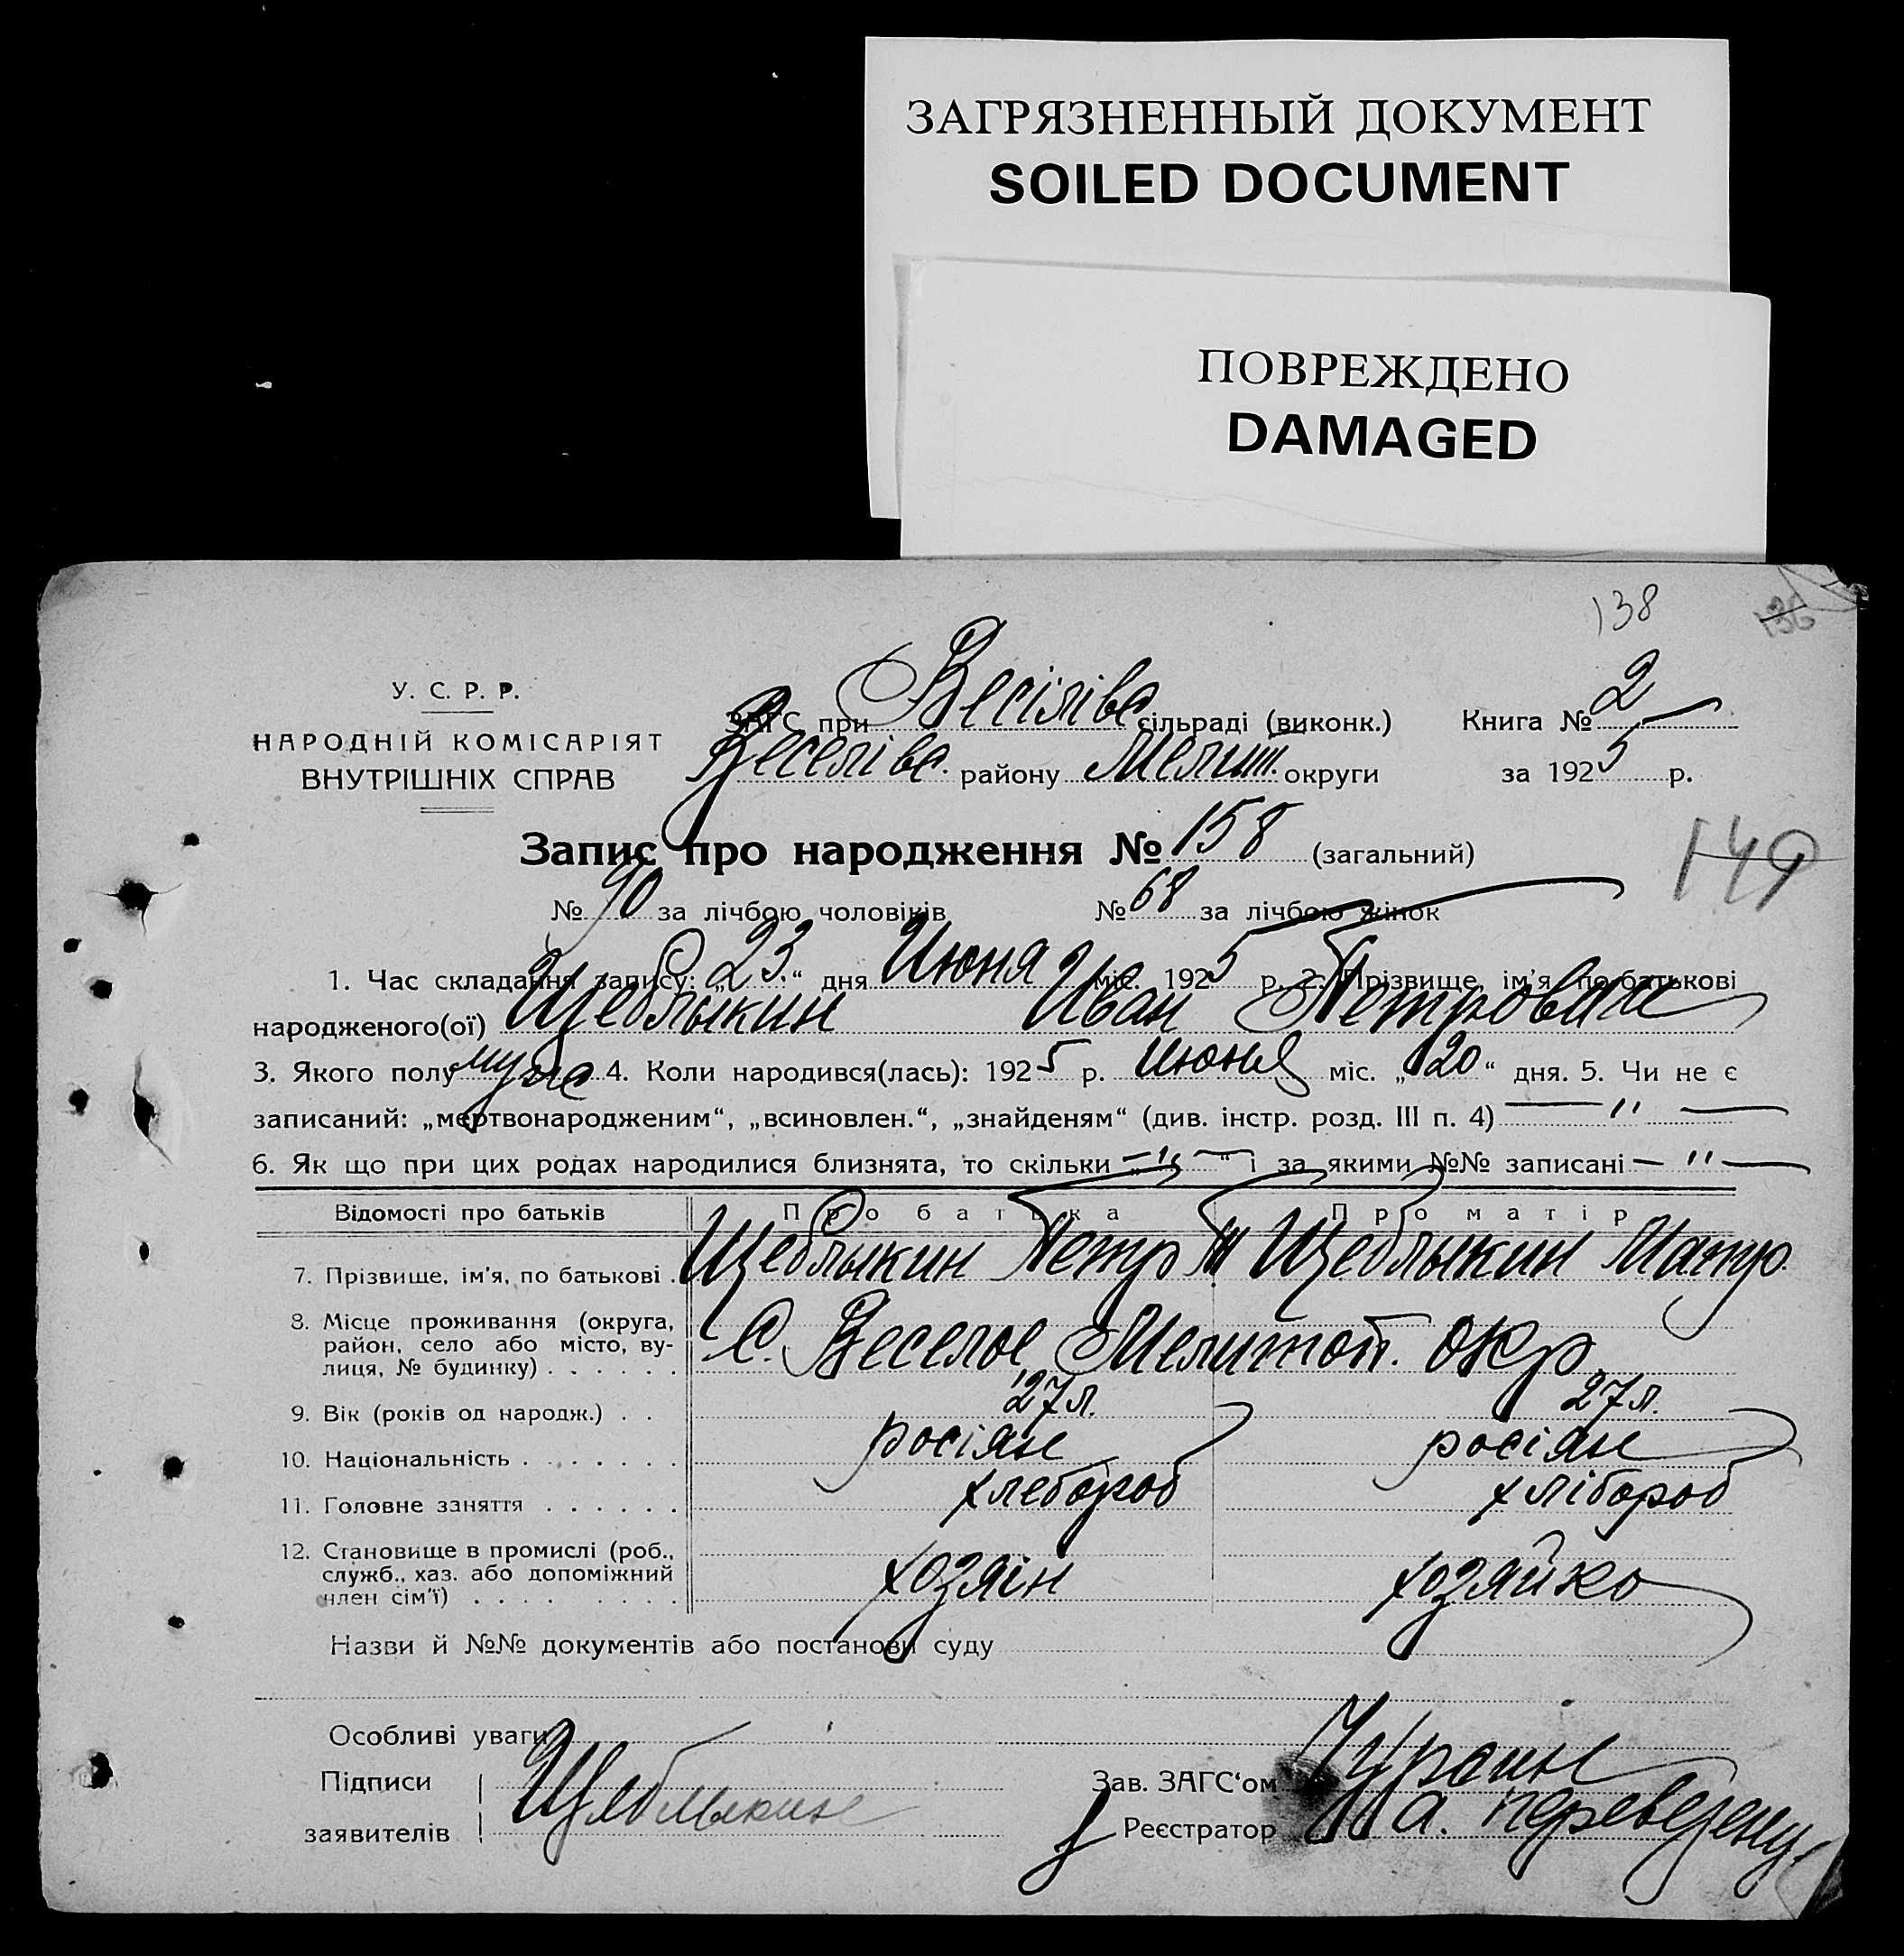 ЗАГРЯЗНЕННЫЙ ДОКУМЕНТ
SOILED DOCUMENT
ПОВРЕЖДЕНО
DAMAGED
138 136
У. С. Р. Р.
НАРОДНІЙ КОМІСАРІЯТ
ВНУТРІШНІХ СПРАВ
ЗАГС при Весіліве сільраді (виконк.) Книга № 2
Веселіве. району Мелит. округи за 1925 р.
Запис про народження № 158 (загальний)
149
№ 90 за лічбою чоловіків № 68 за лічбою жінок
1. Час складання запису: „23“ дня Июня міс. 1925 р. 2. Прізвище, ім'я, по батькові
народженого(ої) Щеблыкин Иван Петрович
3. Якого полу муже 4. Коли народився(лась): 1925 р. Июня міс. „20“ дня. 5. Чи не є
записаний: „мертвонародженим“, „всиновлен.“, „знайденям“ (див. інстр. розд. III п. 4) — " —
6. Як що при цих родах народилися близнята, то скільки „— " —“ і за якими №№ записані — " —
Відомості про батьків Про батька Про матір
7. Прізвище, ім'я, по батькові . Щеблыкин Петр Щеблыкин Матр.
8. Місце проживання (округа,
район, село або місто, ву-
лиця, № будинку) . . . . . . С. Веселое Мелитоп. окр.
9. Вік (років од народж.) . . 27 л. 27 л.
10. Національність . . . . . . . росіян росіян
11. Головне заняття . . . . . . хлебороб хлібороб
12. Становище в промислі (роб.,
служб., хаз. або допоміжний
член сім'ї) . . . . . . . . хозяін хозяйко
Назви й №№ документів або постанови суду
Особливі уваги
Підписи
заявителів Щеблыкин
Зав. ЗАГС‘ом
Реєстратор